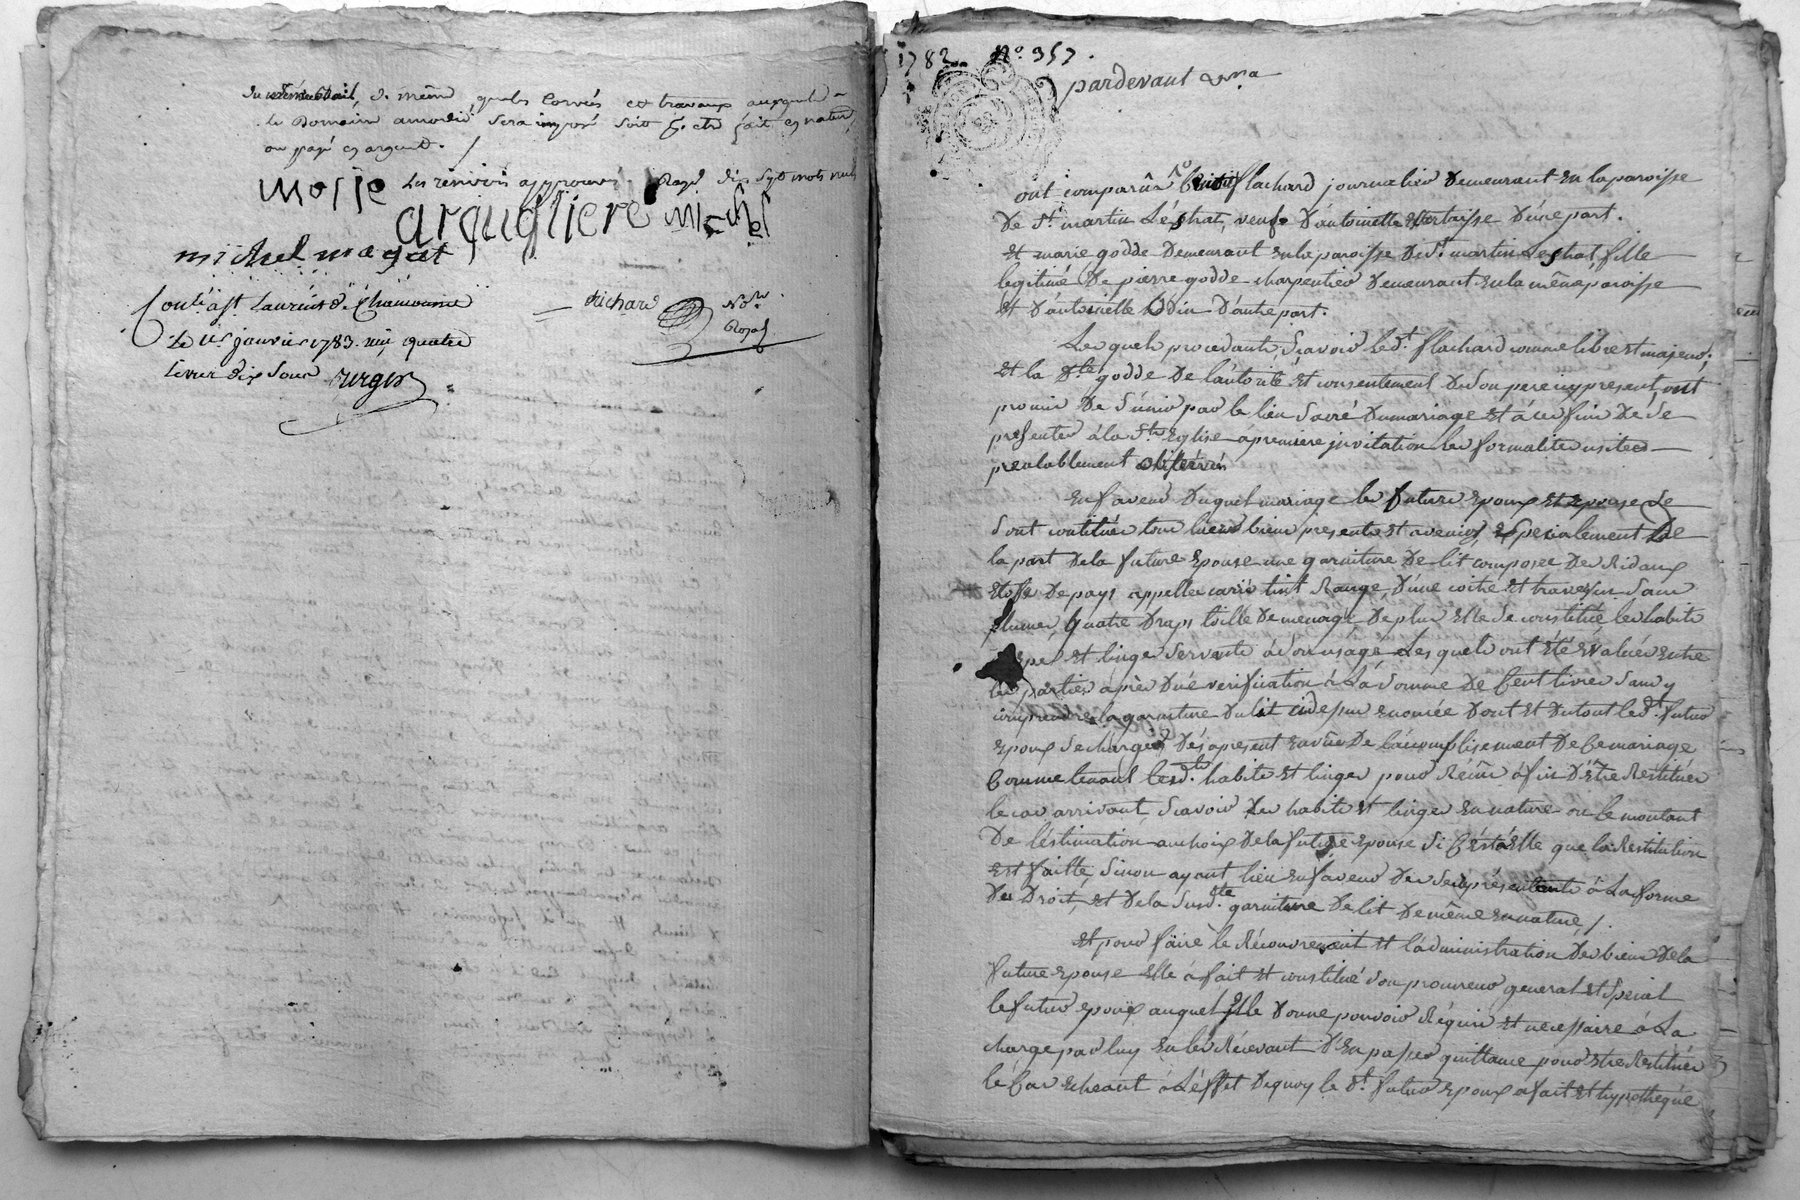 de même, que les Corvées et travaux auxquels
le Domaine sera imposé soit p. être fait en nature
ou payé en argent. /
mosse Les renvois approuvés Rayé dix sept mots nuls
arguglliere michel
michel magat
Richard Not.re Royal
Cont. à St Laurens d. Chamousset
Le 11e janvier 1783. reçu quatre
Livres dix sous
1782 N.° 357.
pardevant
ont comparûs flachard journalier demeurant en la paroisse
De S.t martin Léstrat, veuf D'antoinette D'une part.
et marie godde Demeurant en la paroisse De S.t martin Lestrat, fille
legitime De pierre godde charpentier Demeurant en la même paroisse
et D'antoinette D'autre part.
Lesquels procedants, Sçavoir Led.t flachard comme libre et majeur,
et la d.te godde De l'autorité et consentement De Son pere icy present, ont
promis De S'unir par le lien Sacré Du mariage et à ces fins De Se
presenter à la S.te Eglise à premiere invitation les formalites usitées
prealablement observées
En faveur Duquel mariage les future epoux et epouse Se
Sont constitués tous leurs biens presents et avenirs, Specialement De
la part De la future epouse une garniture De lit composée De Ridaux
etoffe De pays appellée carrié teint Rouge, D'une coitre et traversin Sans
plumes, quatre Draps toille De menage, De plus elle Se constitue, les habits
et linge Servants à Son usage Lesquels ont été evalués entre
les parties après Due verification à La Somme De Cent livres Sans y
comprendre la garniture Du lit cidessus enoncée Dont et Du tout led.t futur
epoux Se charge Dés apresent en vûe De l'accomplissement De Ce mariage
Comme tenant lesd.ts habits et linges pour Reçus à fin D'être Restitués
le cas arrivant Sçavoir Les habits et linges en nature ou le montant
De l'éstimation au choix De la future epouse Si C'est à elle que la Restitution
est faitte, Sinon ayant lieu en faveur De Ses représentants à La forme
Du Droit, et De la Susd.te garniture De lit De même en nature /.
Et pour faire le Récouvrement et l'administration Des biens De la
future epouse elle à fait et constitué Son procureur general et Special
le futur epoux auquel elle Donne pouvoir Réquis et necessaire à La
charge par luy en les Récevant D'en passer quittance pour etre Restitués
le Cas echeant à L'éffet De quoy le d.t futur epoux a fait et hypothéqué